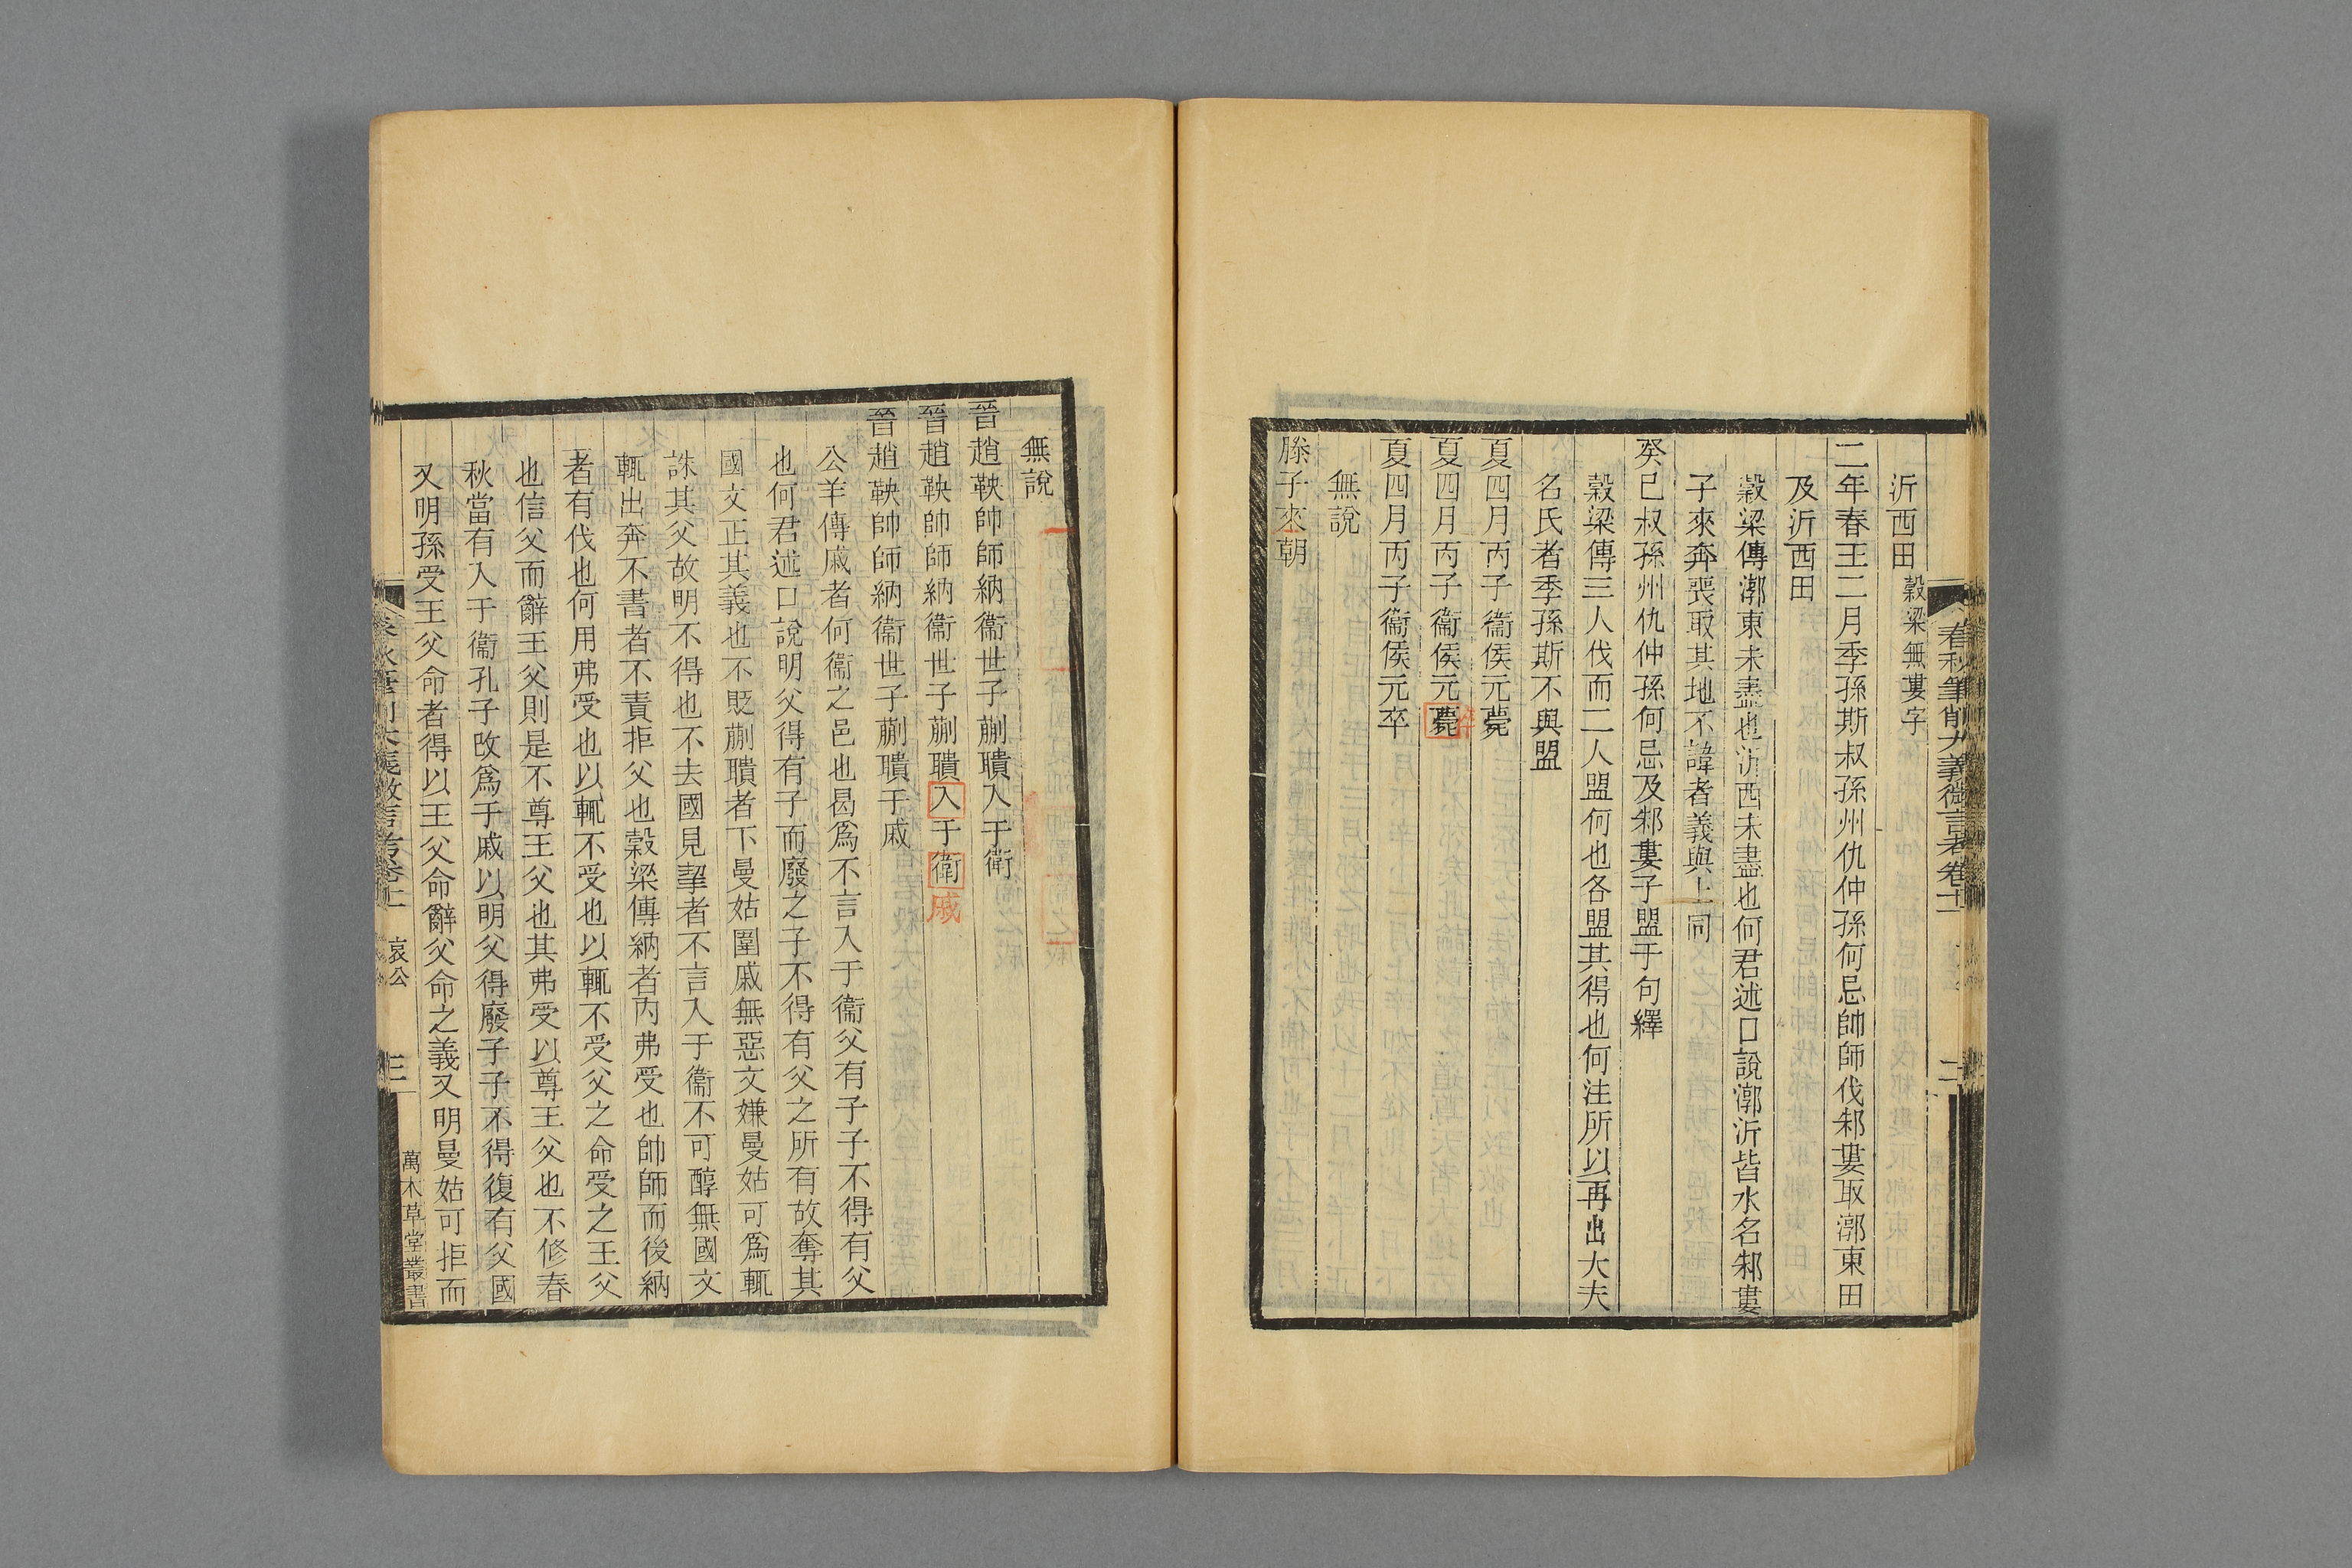 春秋筆削大義微言考卷十一
二
沂西田 穀梁無婁字
二年春王二月季孫斯叔孫州仇仲孫何忌帥師伐邾婁取漷東田
及沂西田
穀梁傳漷東未盡也沂西未盡也何君述口說漷沂皆水名邾婁
子來奔喪取其地不諱者義與上同
癸巳叔孫州仇仲孫何忌及邾婁子盟于句繹
穀梁傳三人伐而二人盟何也各盟其得也何注所以再出大夫
名氏者季孫斯不與盟
夏四月丙子衞侯元薨
夏四月丙子衞侯元薨卒
夏四月丙子衞侯元卒
無說
滕子來朝
無說
晉趙鞅帥師納衞世子蒯聵入于衞
晉趙鞅帥師納衞世子蒯聵入于衞戚
晉趙鞅帥師納衞世子蒯聵于戚
公羊傳戚者何衞之邑也曷爲不言入于衞父有子子不得有父
也何君述口說明父得有子而廢之子不得有父之所有故奪其
國文正其義也不貶蒯聵者下曼姑圍戚無惡文嫌曼姑可爲輒
誅其父故明不得也不去國見挈者不言入于衞不可醇無國文
輒出奔不書者不責拒父也穀梁傳納者內弗受也帥師而後納
者有伐也何用弗受也以輒不受也以輒不受父之命受之王父
也信父而辭王父則是不尊王父也其弗受以尊王父也不修春
秋當有入于衞孔子改爲于戚以明父得廢子子不得復有父國
又明孫受王父命者得以王父命辭父命之義又明曼姑可拒而
春秋筆削大義微言考卷十一 哀公
三
萬木草堂叢書